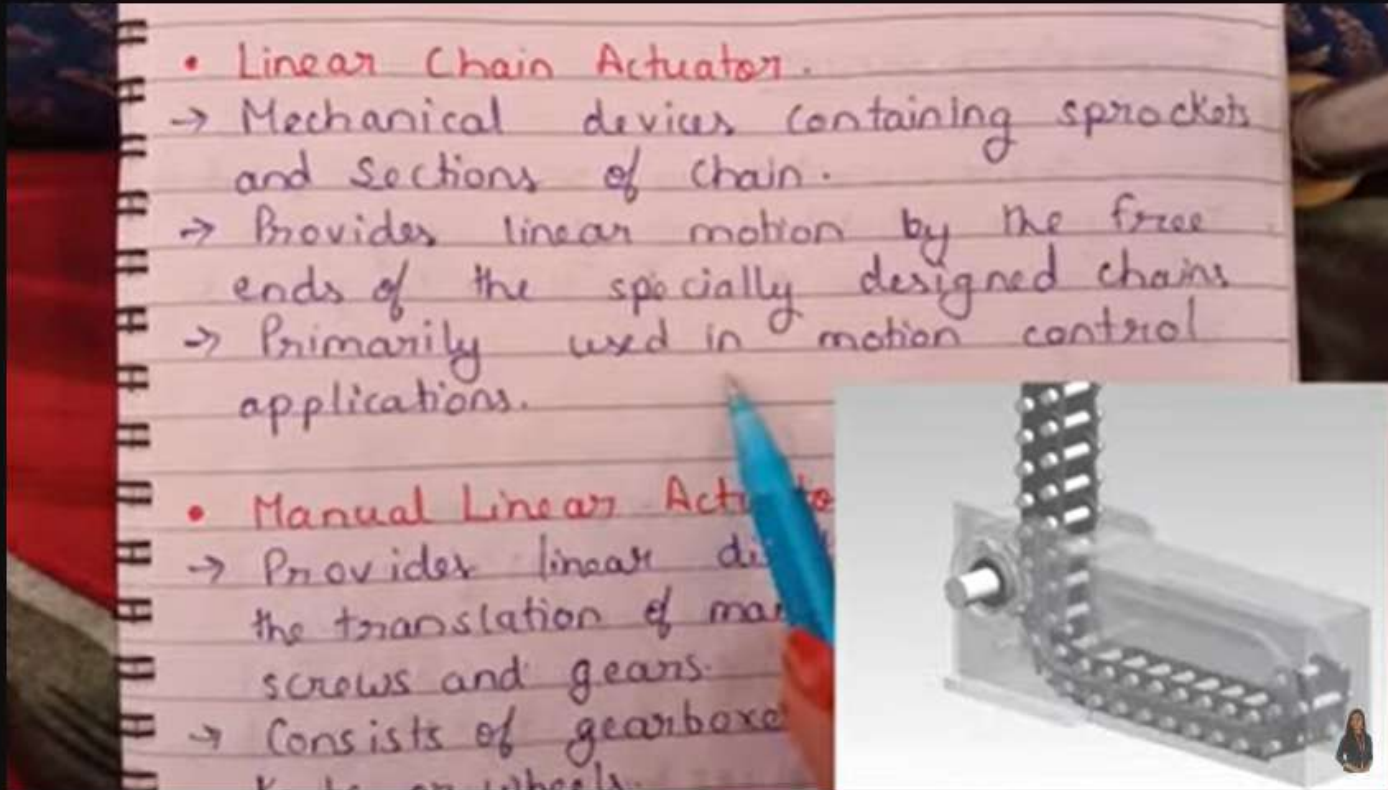 • Linear Chain Actuator.
→ Mechanical devices containing sprockets
and sections of chain.
→ Provides linear motion by the free
ends of the specially designed chains
→ Primarily used in motion control
applications.
• Manual Linear
→ Provides linear
the translation of
screws and gears.
→ Consists of
or wheels.